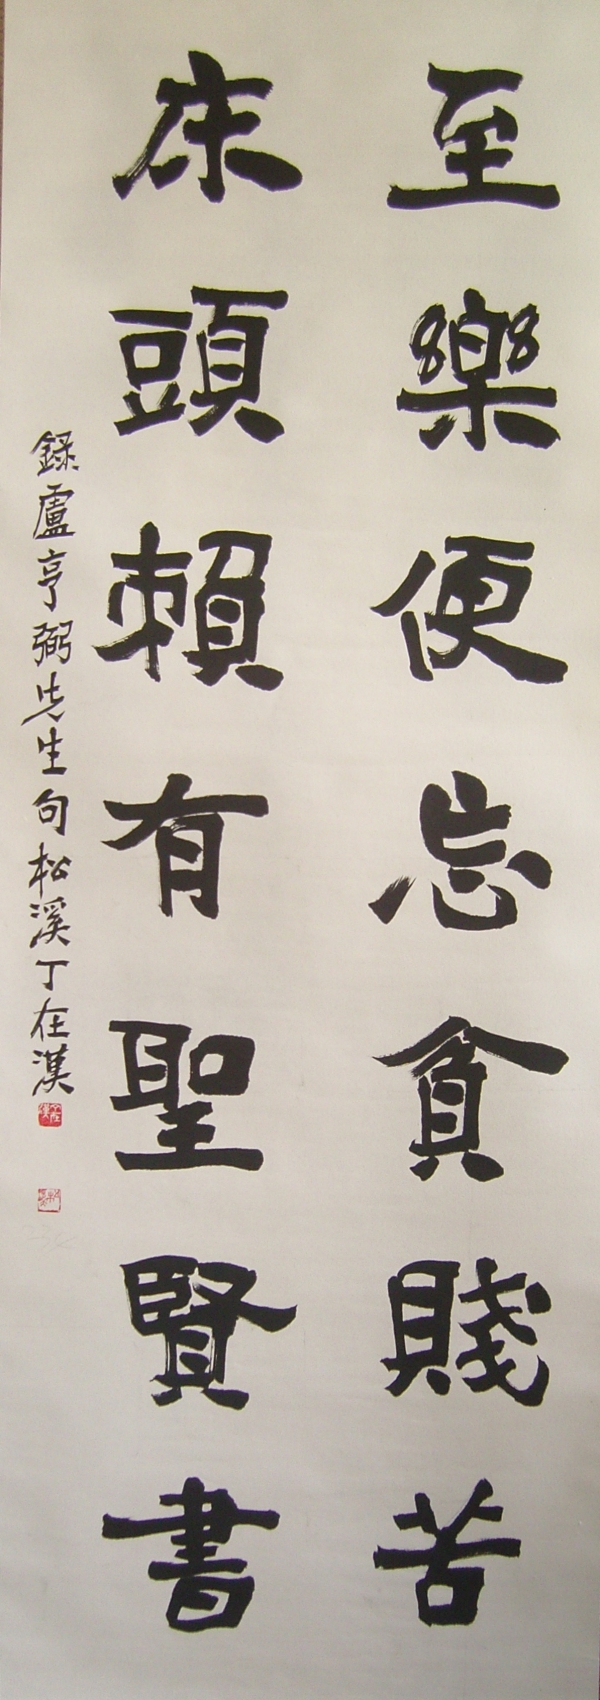 至樂便忘貪賤苦
床頭賴有聖賢書
錄盧亨弼先生句松溪丁在漢